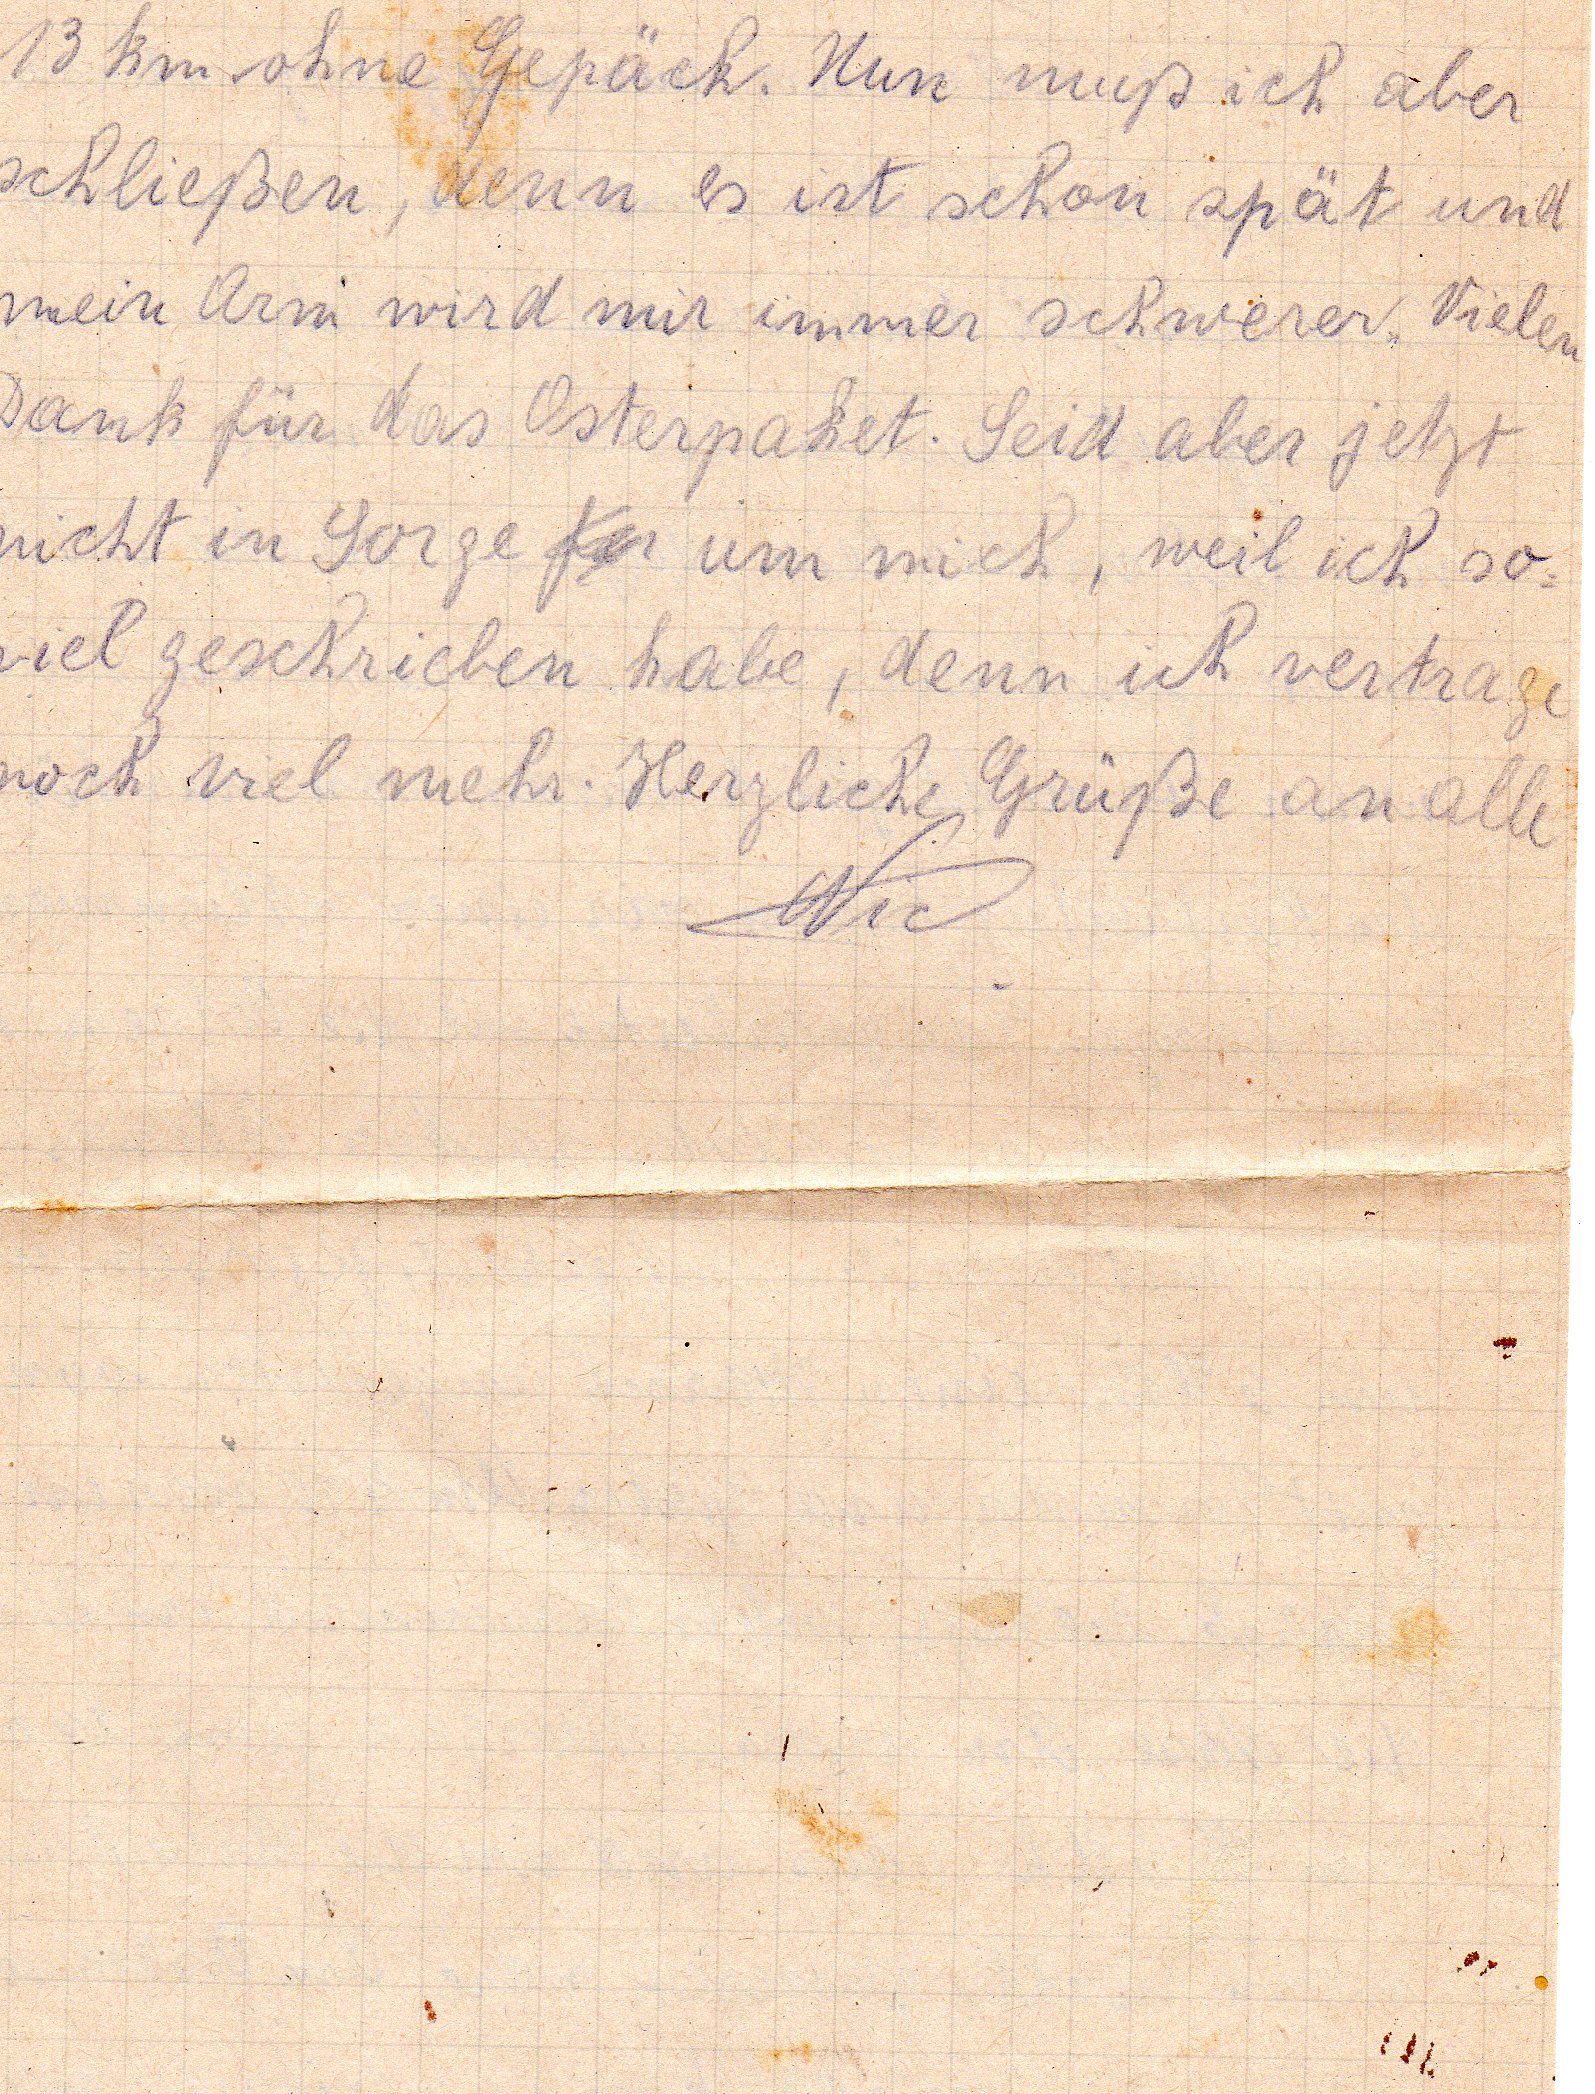 13 km ohne Gepäck. Nun muß ich aber
schließen, denn es ist schon spät und
mein Arm wird mir immer schwerer. Vielen
Dank für das Osterpaket. Seid aber jetzt
nicht in Sorge um mich, weil ich so-
viel geschrieben habe, denn ich vertrage
noch viel mehr. Herzliche Grüße an alle
Nic